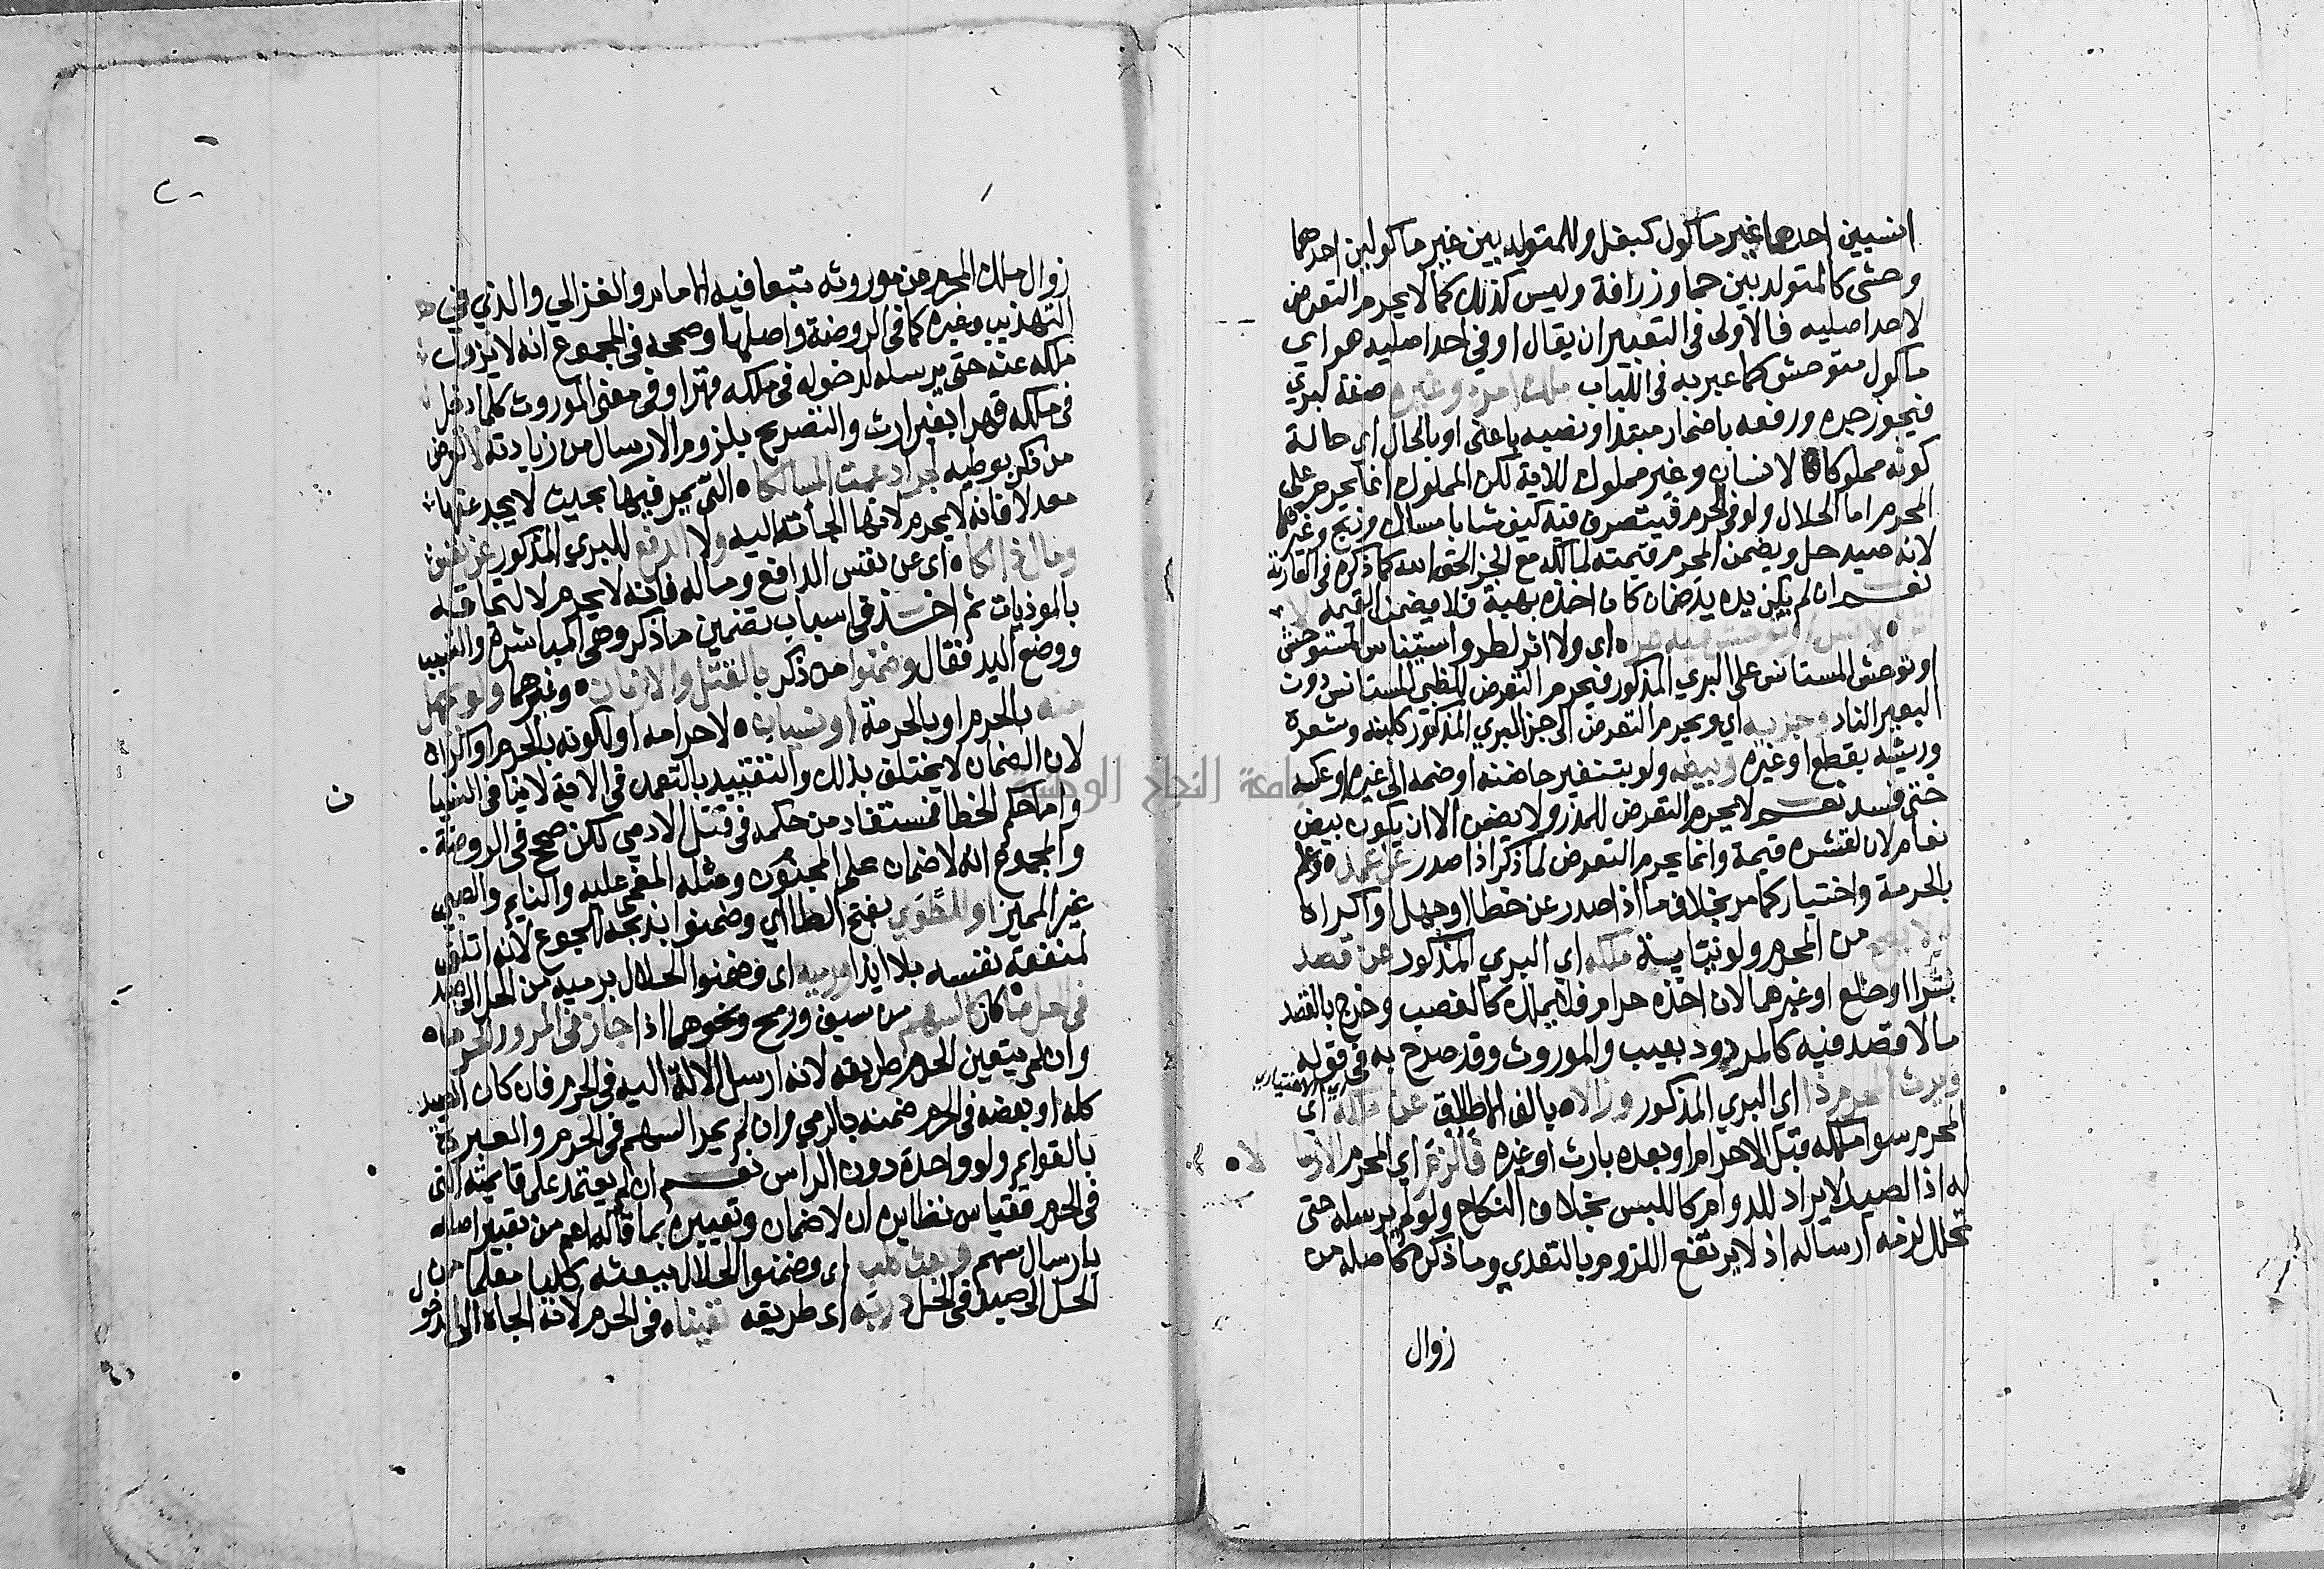 انسيين احدهما غير ماكول كبغل وللمتولد بين غير ماكولين احدهما
وحشى كالمتولد بين حمار وزرافة وليس كذلك كما لا يحرم التعرض
لاحد اصليه فالاولى فى التعبير ان يقال او في احد اصليه هو اي
ماكول متوحش كما عبر به فى اللباب ملك امره وغيره صفة لبري
فيجوز جره ورفعه باضمار مبتدا ونصبه باعنى او بالحال اى حالة
كونه مملوكا لانسان وغير مملوك للاية لكن المملوك انما يحرم على
المحرم اما الحلال ولو فى الحرم فيتصرف فيه كيف شا بامساك وذبح وغيرهما
لانه صيد حل ويضمن المحرم قيمته لمالكه مع الجزا لحق الله كما ذكره فى العارية
نعم ان لم يكن يده يد ضمان كان اخذه بهبة فلا يضمن القيمة لا
اى ولا اثر لطرو استيناس المستوحش
او توحش المستانس على البري المذكور فيحرم التعرض للظبى المستانس دون
البعير الناد وجزيه اي ويحرم التعرض الى جز البري المذكور كلبنه وشعره
وريشه بقطع او غيره وبيضه ولو بتنفير حاضنه او ضمه الى غيره او عكسه
حتى فسد نعم لا يحرم التعرض للمذر ولا يضمن الا ان يكون بيض
نعام لان لقشره قيمة وانما يحرم التعرض لما ذكر اذا صدر عن عمد وعلم
بالحرمة واختيار كما مر بخلاف ما اذا صدر عن خطا او جهل او اكراه
من المحرم ولو بنيابة ملكه اي البري المذكور عن قصد
بشرا او خلع او غيرهما لان اخذه حرام فلا يملك كالغصب وخرج بالقصد
مالا قصد فيه كالمردود بعيب والموروث وقد صرح به فى قوله
ويرث المحرم ذا اي البري المذكور وزالا بالف الاطلاق عن ملكه اي
المحرم سوا ملكه قبل الاحرام او بعده بارث او غيره فالزم اي المحرم الارسالا
له اذ الصيد لا يراد للدوام كاللبس بخلاف النكاح ولو لم يرسله حتى
تحلل لزمه ارساله اذ لا يرتفع اللزوم بالتعدي وما ذكره كاصله من
زوال
زوال ملك المحرم عن موروثه تبعا فيه الامام والغزالي والذي في
التهذيب وغيره كما فى الروضة واصلها وصححه فى المجموع انه لا يزول
ملكه عنه حتى يرسله لدخوله فى ملكه قهرا وفى معنى الموروث كلما دخل
فى ملكه قهرا بغير ارث والتصريح بلزوم الارسال من زيادته لا تعرض
من ذكر بوطيه لجراد عمت المسالكا التى يمر فيها بحيث لا يجد عنها
معدلا فانه لا يحرم لانها الجاته اليه ولا الدفع للبري المذكور عن نفس
ومال ذلكا اى عن نفس الدافع وماله فانه لا يحرم لالتحاقه
بالموذيات ثم اخذ فى اسباب تضمين ما ذكر وهى المباشرة والتسبب
ووضع اليد فقال وضمنوا من ذكر بالقتل والازمان ونحوهما ولو بجهل
منه بالحرم او بالحرمة او نسيان لاحرامه او لكونه بالحرم او اكراه
لان الضمان لا يختلف بذلك والتقييد بالتعمد فى الاية لا ينافى النسيا
واما حكم الخطا فمستفاد من حكمه فى قتل الادمي لكن صحح فى الروضة
والمجموع انه لا ضمان على المجنون ومثله المغمى عليه والنايم والصبى
غير المميز او للطوى بفتح الطا اي وضمنوا بذبحه للجوع لانه اتلف
لمنفعة نفسه بلا ايذا ورميه اى وضمنوا الحلال برميه من الحل الى صيد
فى الحل كالسهم من سيف ورمح ونحوهما اذا جاز فى المرور الحرما
وان لم يتعين الحرم طريقه لانه ارسل الالة اليه فى الحرم فان كان الصيد
كله او بعضه فى الحرم ضمنه بالرمي وان لم يمر السهم فى الحرم والعبرة
بالقوايم ولو واحدة دون الراس نعم ان لم يعتمد على قايمته التى
فى الحرم فقياس نظايره ان لا ضمان وتعبيره بما قاله اعم من تعبير اصله
بارسال سهم وبعث كلب اى وضمنوا الحلال ببعثه كلبا معلما من
الحل الى صيد فى الحل دربه اى طريقه تعينا فى الحرم لانه الجاه الى الدخول
جامعة النجاح الوطنية